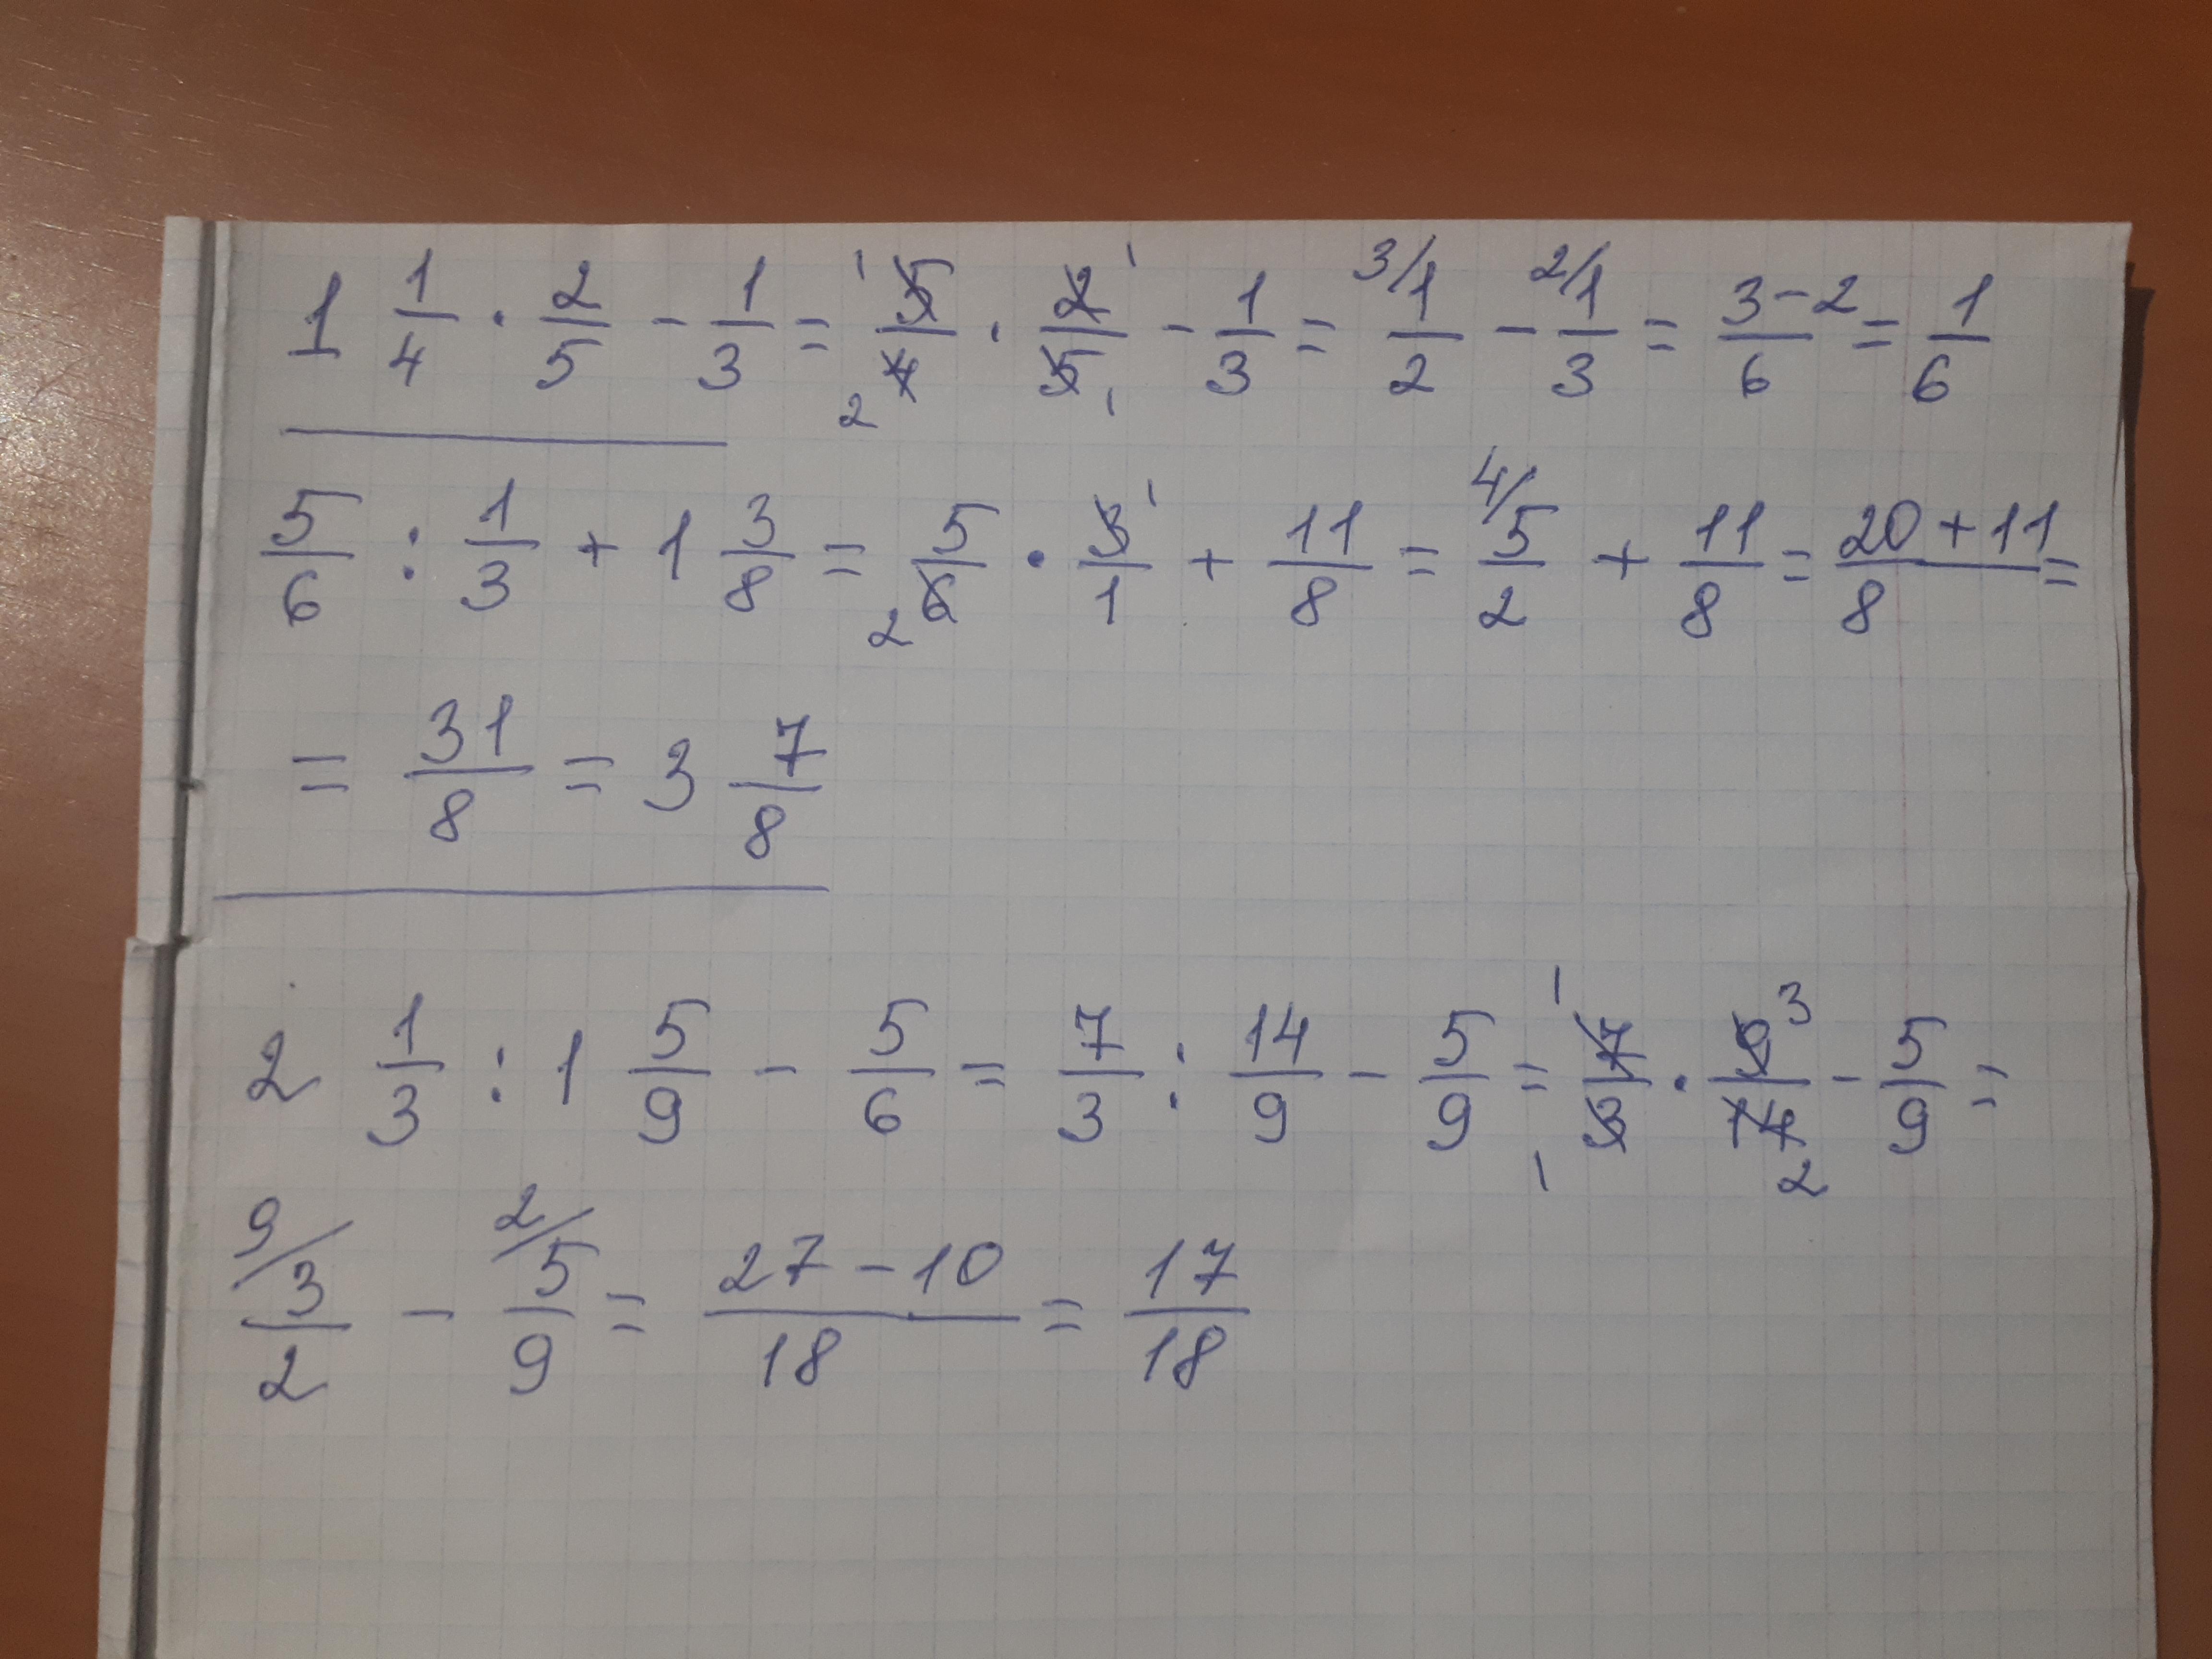 1 1/4 · 2/5 - 1/3 = 5/4 · 2/5 - 1/3 = 1/2 - 1/3 = 3-2/6 = 1/6
5/6 : 1/3 + 1 3/8 = 5/6 · 3/1 + 11/8 = 5/2 + 11/8 = 20+11/8 =
= 31/8 = 3 7/8
2 1/3 : 1 5/9 - 5/6 = 7/3 : 14/9 - 5/9 = 7/3 · 9/14 - 5/9 =
3/2 - 5/9 = 27-10/18 = 17/18